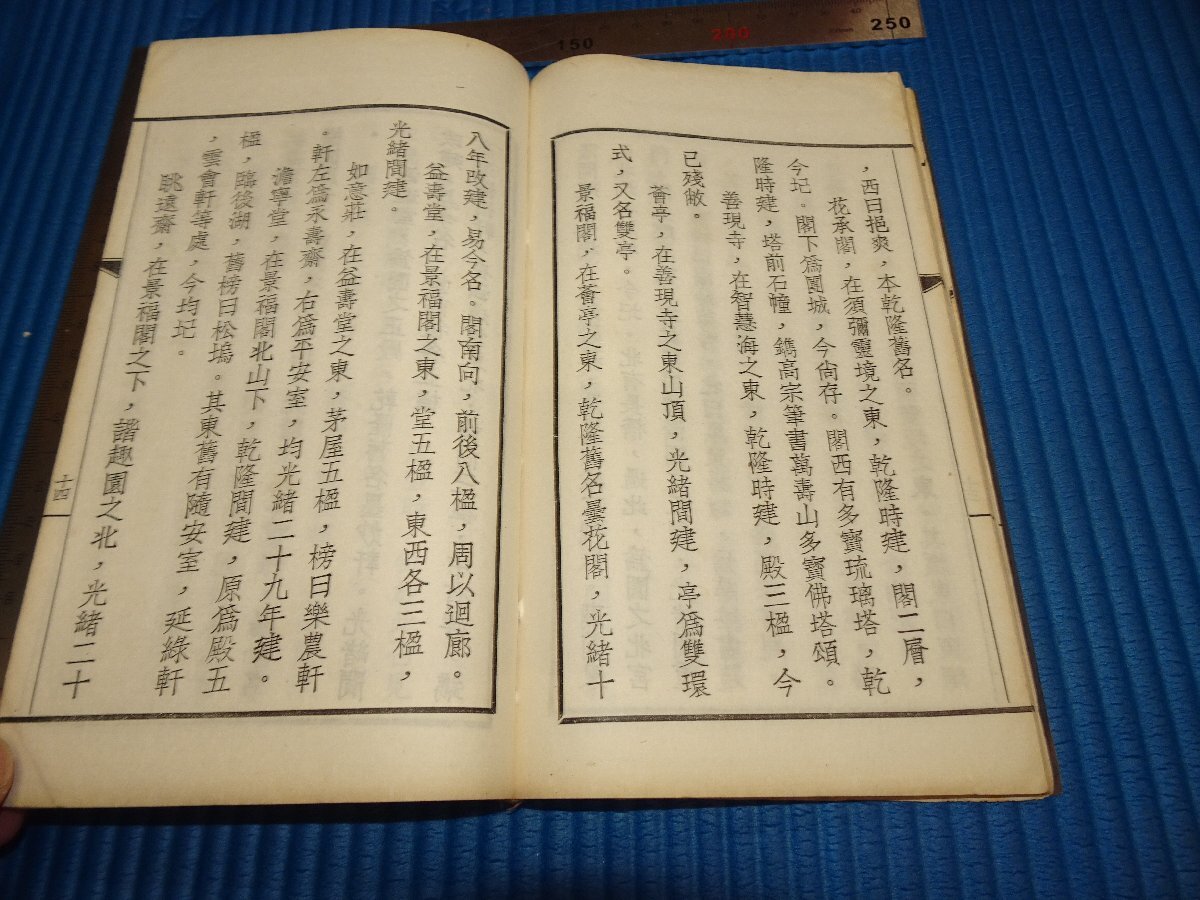 150
200
250
，西曰挹爽，本乾隆舊名。
花承閣，在須彌靈境之東，乾隆時建，閣二層，
今圮。閣下爲團城，今尙存。閣西有多寶琉璃塔，乾
隆時建，塔前石幢，鐫高宗筆書萬壽山多寶佛塔頌。
善現寺，在智慧海之東，乾隆時建，殿三楹，今
已殘敝。
薈亭，在善現寺之東山頂，光緒間建，亭爲雙環
式，又名雙亭。
景福閣，在薈亭之東，乾隆舊名曇花閣，光緒十
八年改建，易今名。閣南向，前後八楹，周以迴廊。
益壽堂，在景福閣之東，堂五楹，東西各三楹，
光緒間建。
如意莊，在益壽堂之東，茅屋五楹，榜曰樂農軒
。軒左爲永壽齋，右爲平安室，均光緒二十九年建。
澹寧堂，在景福閣北山下，乾隆間建，原爲殿五
楹，臨後湖，舊榜曰松塢。其東舊有隨安室，延綠軒
，雲會軒等處，今均圮。
眺遠齋，在景福閣之下，諧趣園之北，光緒二十
十四